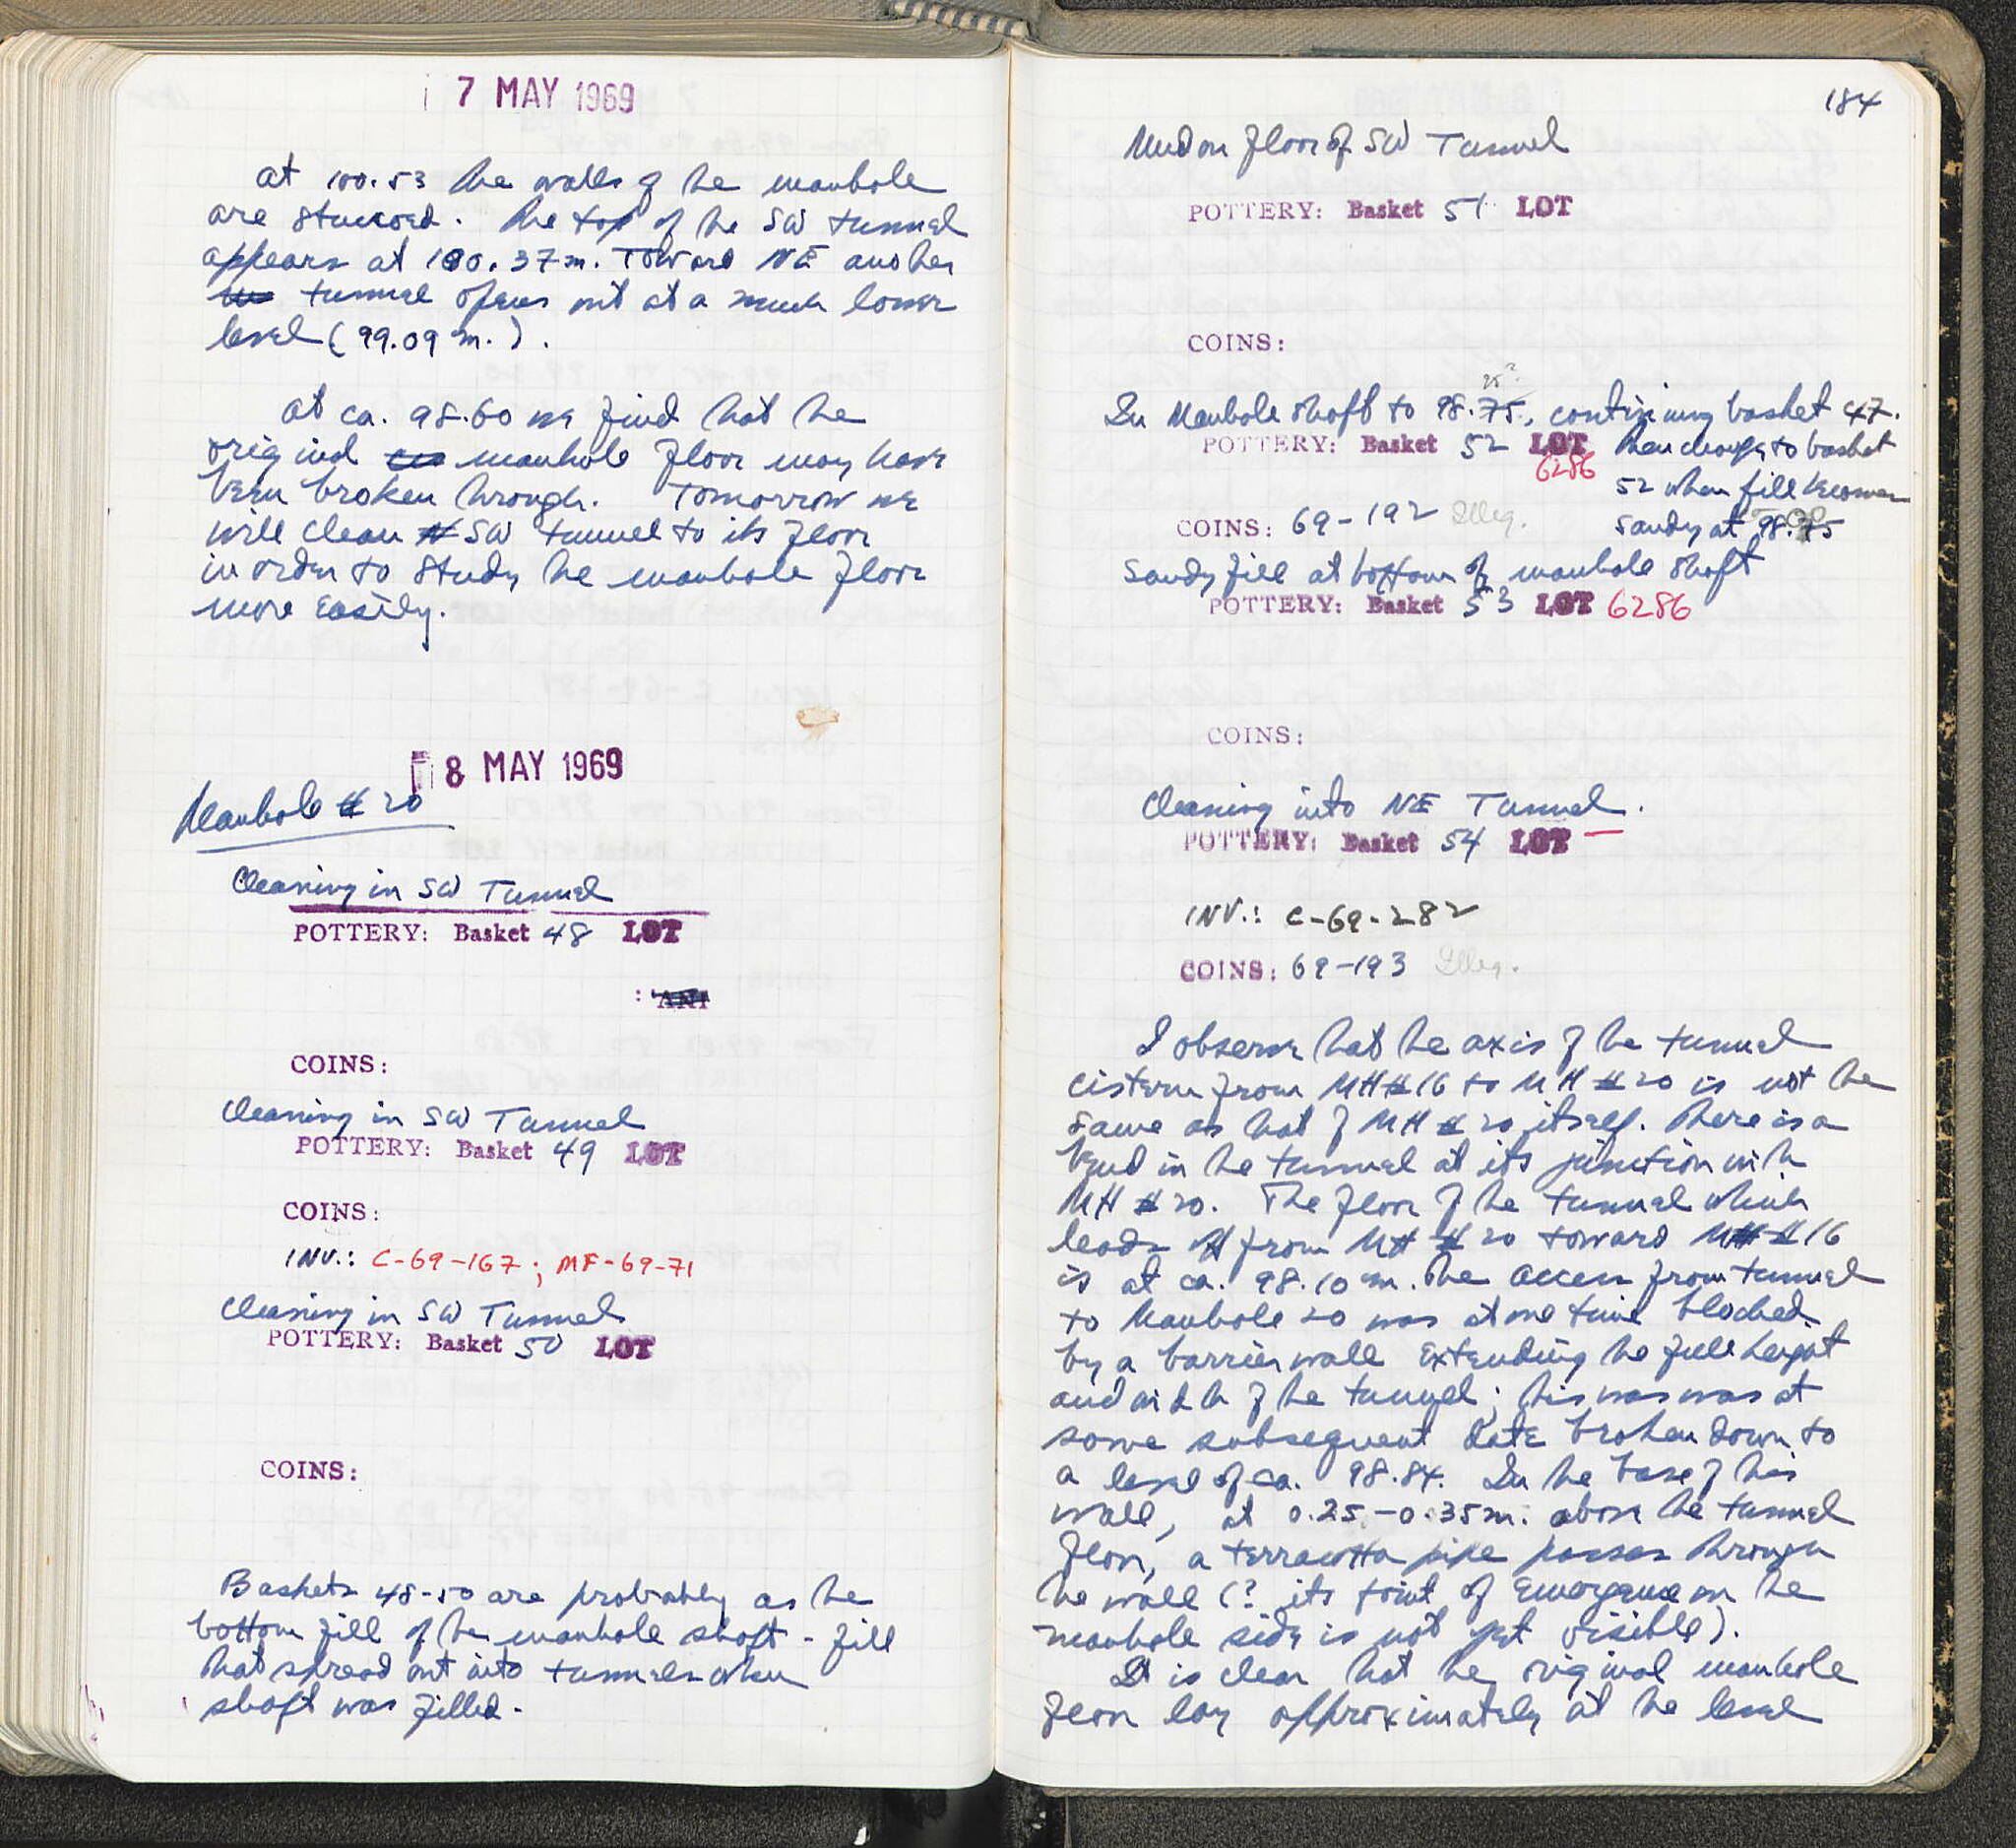 7 MAY 1969
at 100.53 the walls of the manhole
are stuccoed. The top of the SW tunnel
appears at 100.37 m. Toward NE another
tunnel opens out at a much lower
level (99.09 m.).
at ca. 98.60 we find that the
original manhole floor may have
been broken through. Tomorrow we
will clean SW tunnel to its floor
in order to study the manhole floor
more easily.
8 MAY 1969
Manhole # 20
Cleaning in SW Tunnel
POTTERY: Basket 48 LOT
COINS:
Cleaning in SW Tunnel
POTTERY: Basket 49 LOT
COINS:
INV.: C-69-167; MF-69-71
Cleaning in SW Tunnel
POTTERY: Basket 50 LOT
COINS:
Baskets 48-50 are probably as the
bottom fill of the manhole shaft - fill
that spread out into tunnels when
shaft was filled.
184
Mud on floor of SW Tunnel
POTTERY: Basket 51 LOT
COINS:
In Manhole shaft to 98.75, continuing basket 47.
POTTERY: Basket 52 LOT then change to basket
6286
52 when fill becomes
COINS: 69-192 Illeg. sandy at
Sandy fill at bottom of manhole shaft
POTTERY: Basket 53 LOT 6286
COINS:
Cleaning into NE Tunnel.
POTTERY: Basket 54 LOT —
INV.: C-69-282
COINS: 69-193 Illeg.
I observe that the axis of the tunnel
cistern from MH #16 to MH #20 is not the
same as that of MH #20 itself. There is a
bend in the tunnel at its junction with
MH #20. The floor of the tunnel which
leads from MH #20 toward MH #16
is at ca. 98.10 m. The access from tunnel
to Manhole 20 was at one time blocked
by a barrier wall extending the full height
and width of the tunnel; this was was at
some subsequent date broken down to
a level of ca. 98.84. In the base of this
wall, at 0.25-0.35m. above the tunnel
floor, a terracotta pipe passes through
the wall (? its point of emergence on the
manhole side is not yet visible).
It is clear that the original manhole
floor lay approximately at the level